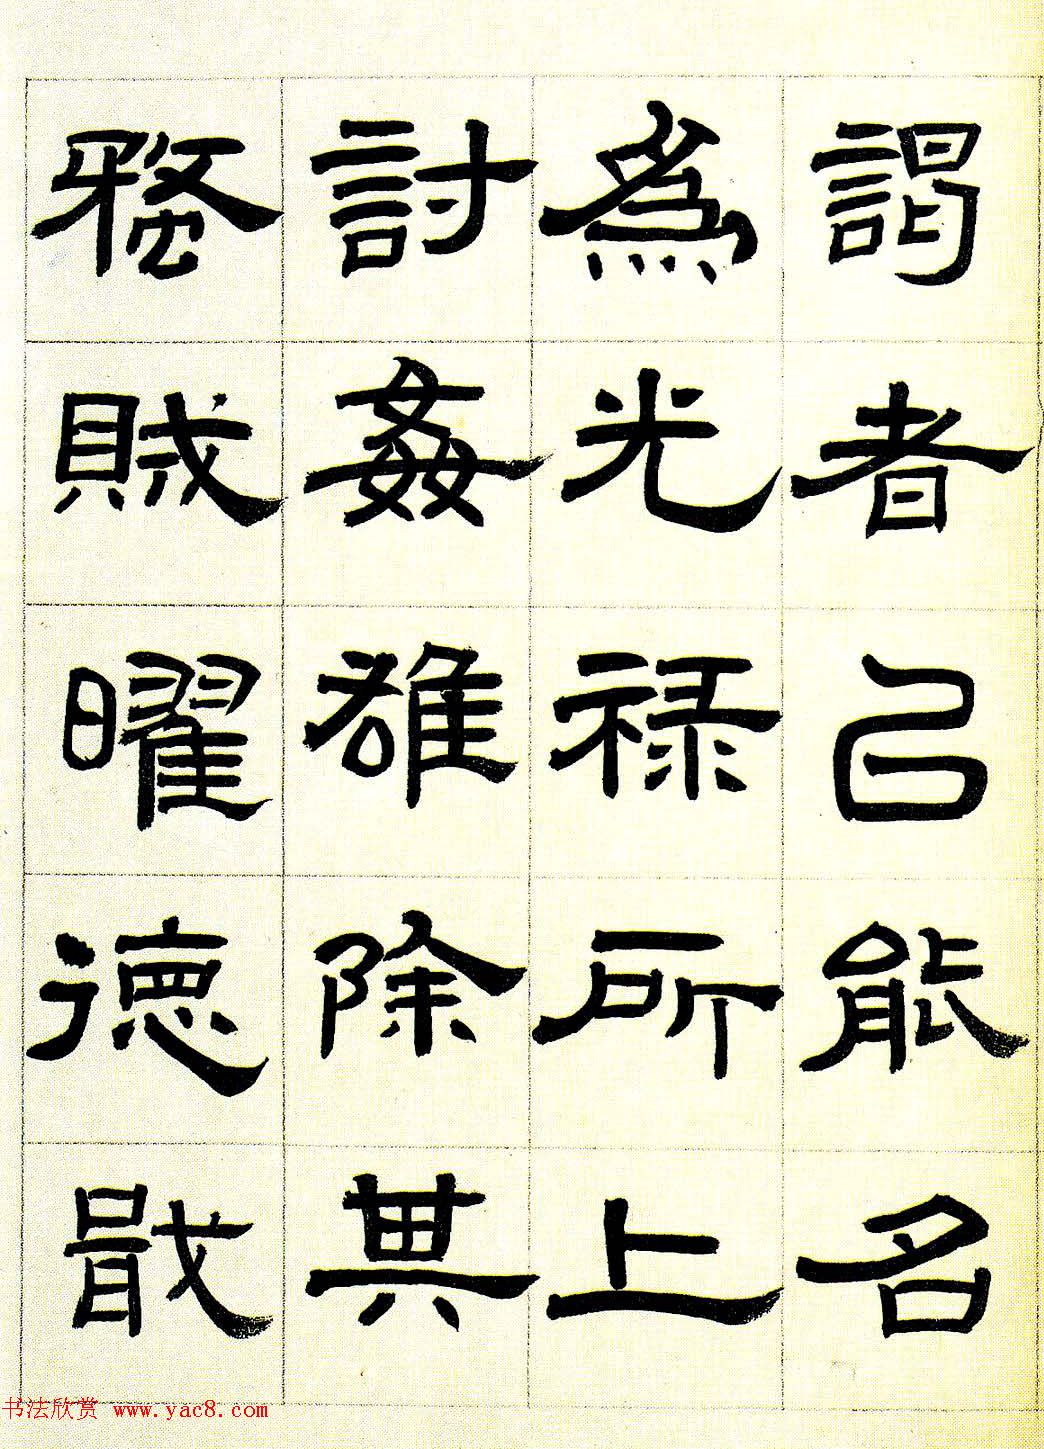 謁者㠯能名
為光禄所上
討姦雄除其
蝥賊曜德戢
书法欣赏 www.yac8.com